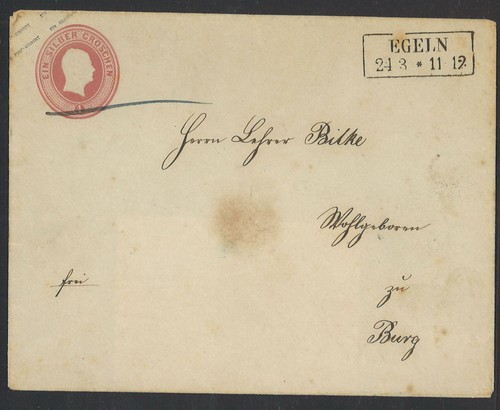 EIN SILBER GROSCHEN
1
EGELN
24 3 * 11 12
Herrn Lehrer Bilke
Wohlgeboren
frei
zu
Burg